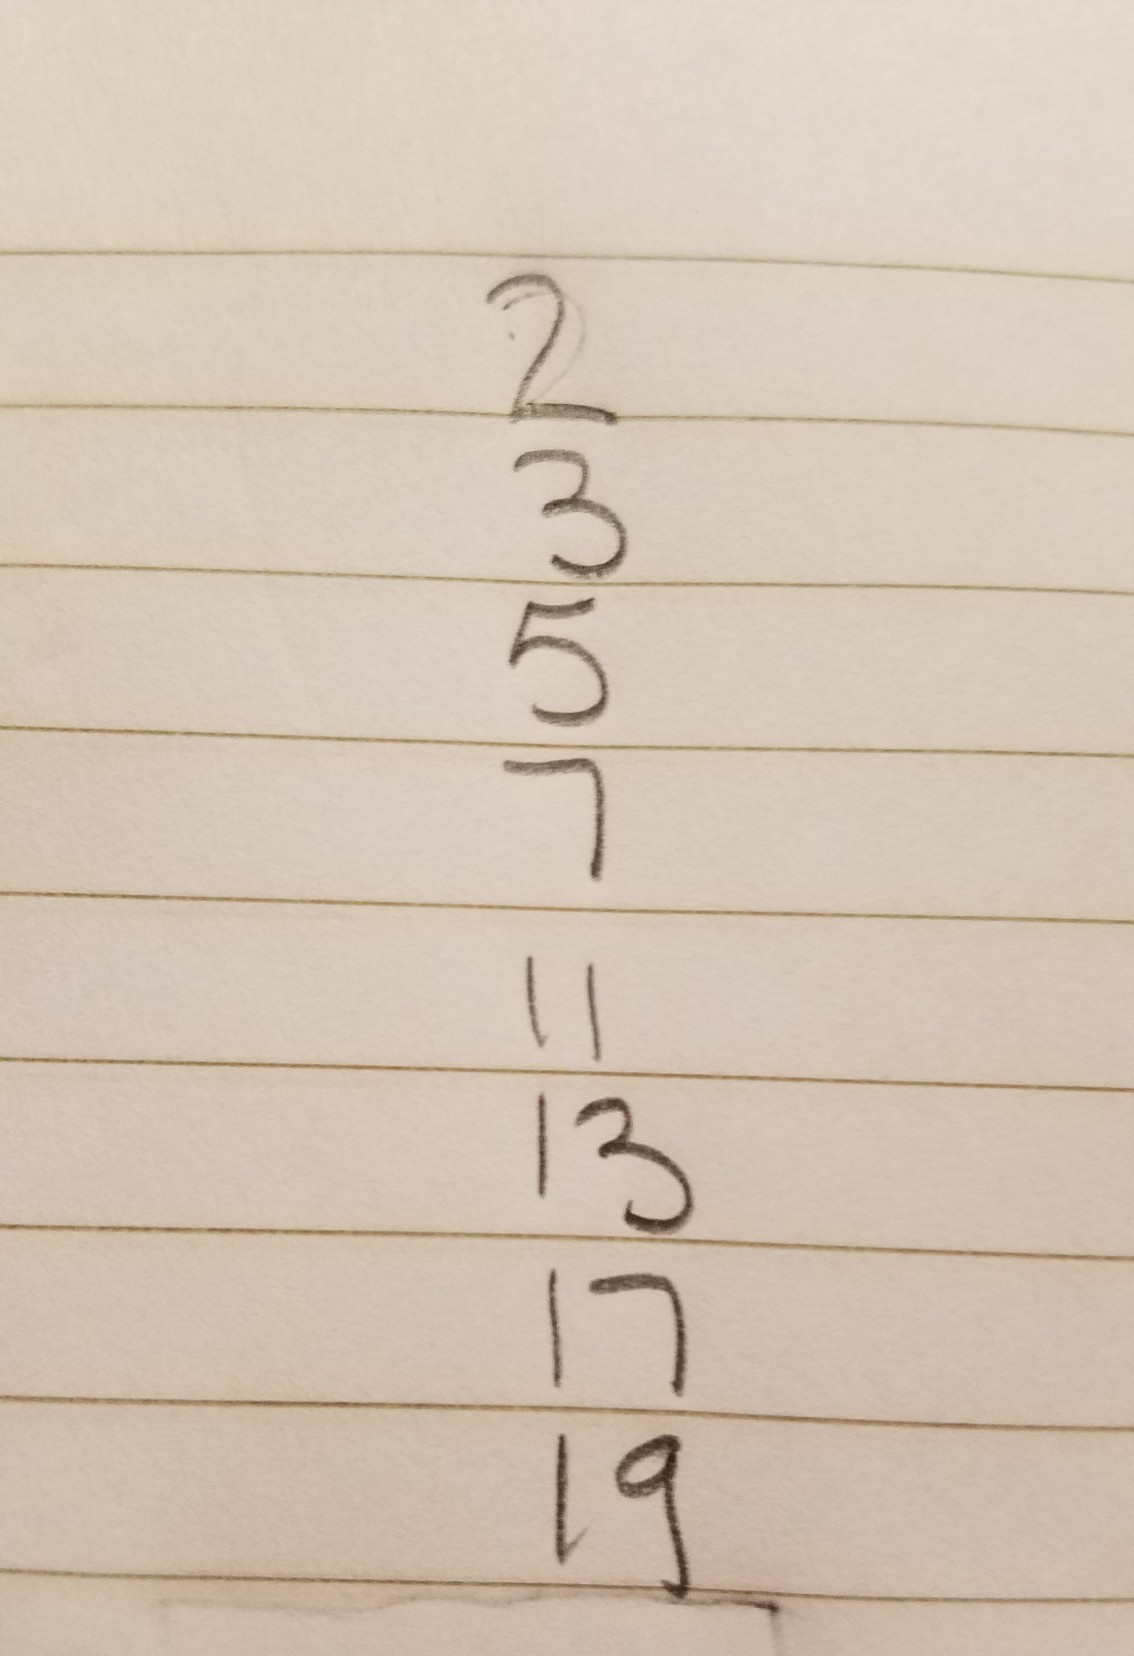 2
3
5
7
11
13
17
19